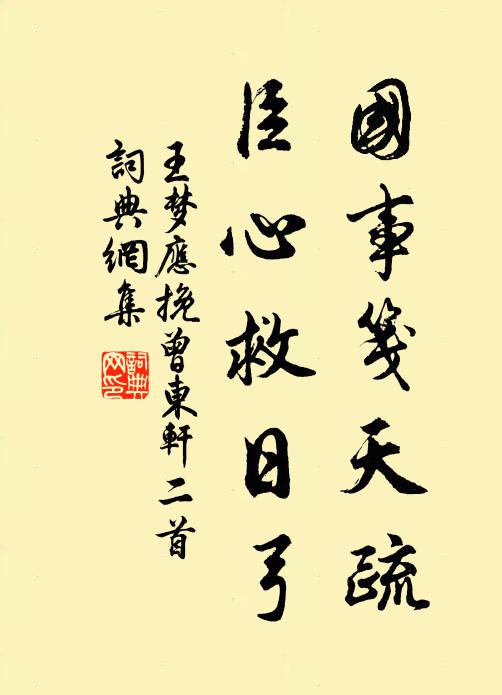 國事箋天疏
臣心救日弓
王梦應挽曾東軒二首
詞典網集
詞典网印